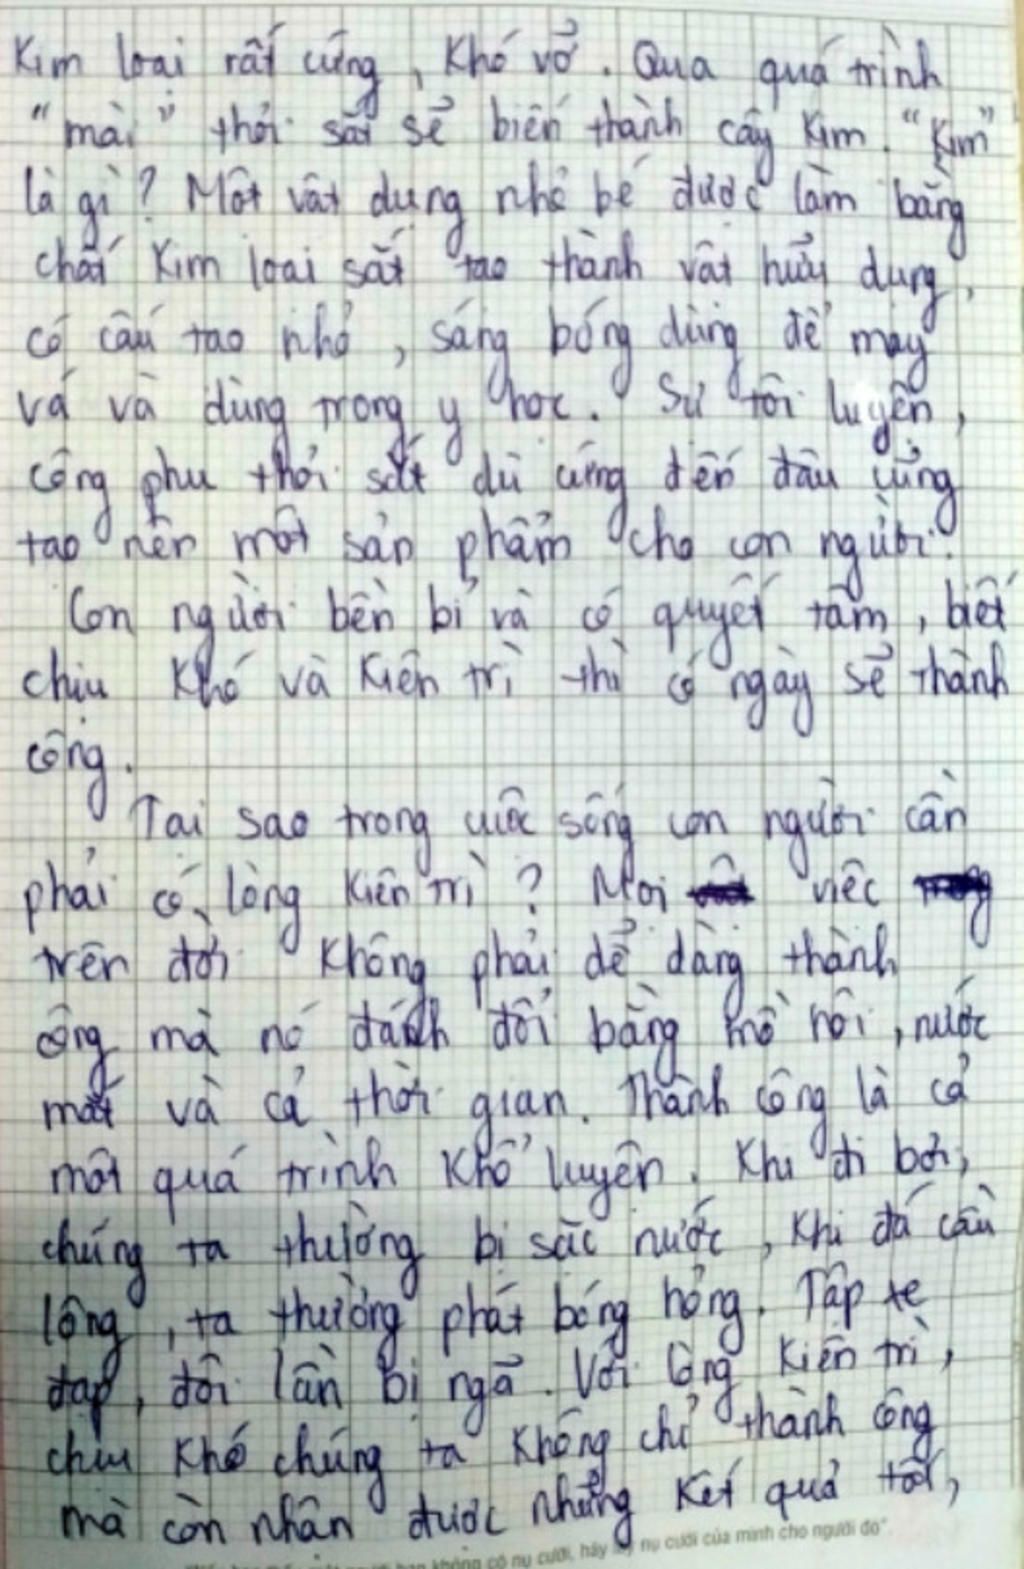 Kim loại rất cứng, Khó vỡ. Qua quá trình
"mài" thỏi sắt sẽ biến thành cây Kim. "Kim"
là gì? Một vật dụng nhỏ bé được làm bằng
chất Kim loại sắt tạo thành vật hữu dụng,
có cấu tạo nhỏ, sáng bóng dùng để may
vá và dùng trong y học. Sự tôi luyện,
công phu thỏi sắt dù cứng đến đâu cũng
tạo nên một sản phẩm cho con người.
Con người bền bỉ và có quyết tâm, biết
chịu Khó và Kiên trì thì có ngày sẽ thành
công.
Tại sao trong cuộc sống con người cần
phải có lòng Kiên trì? Mọi việc
trên đời Không phải dễ dàng thành
công mà nó đánh đổi bằng mồ hôi, nước
mắt và cả thời gian. Thành công là cả
một quá trình Khổ luyện. Khi đi bơi,
chúng ta thường bị sặc nước, Khi đá cầu
lông, ta thường phát bóng hỏng. Tập xe
đạp, đôi lần bị ngã. Với lòng Kiên trì,
chịu Khó chúng ta Không chỉ thành công
mà còn nhận được những Kết quả tốt,
không có nụ cười, hãy lấy nụ cười của mình cho người đó".